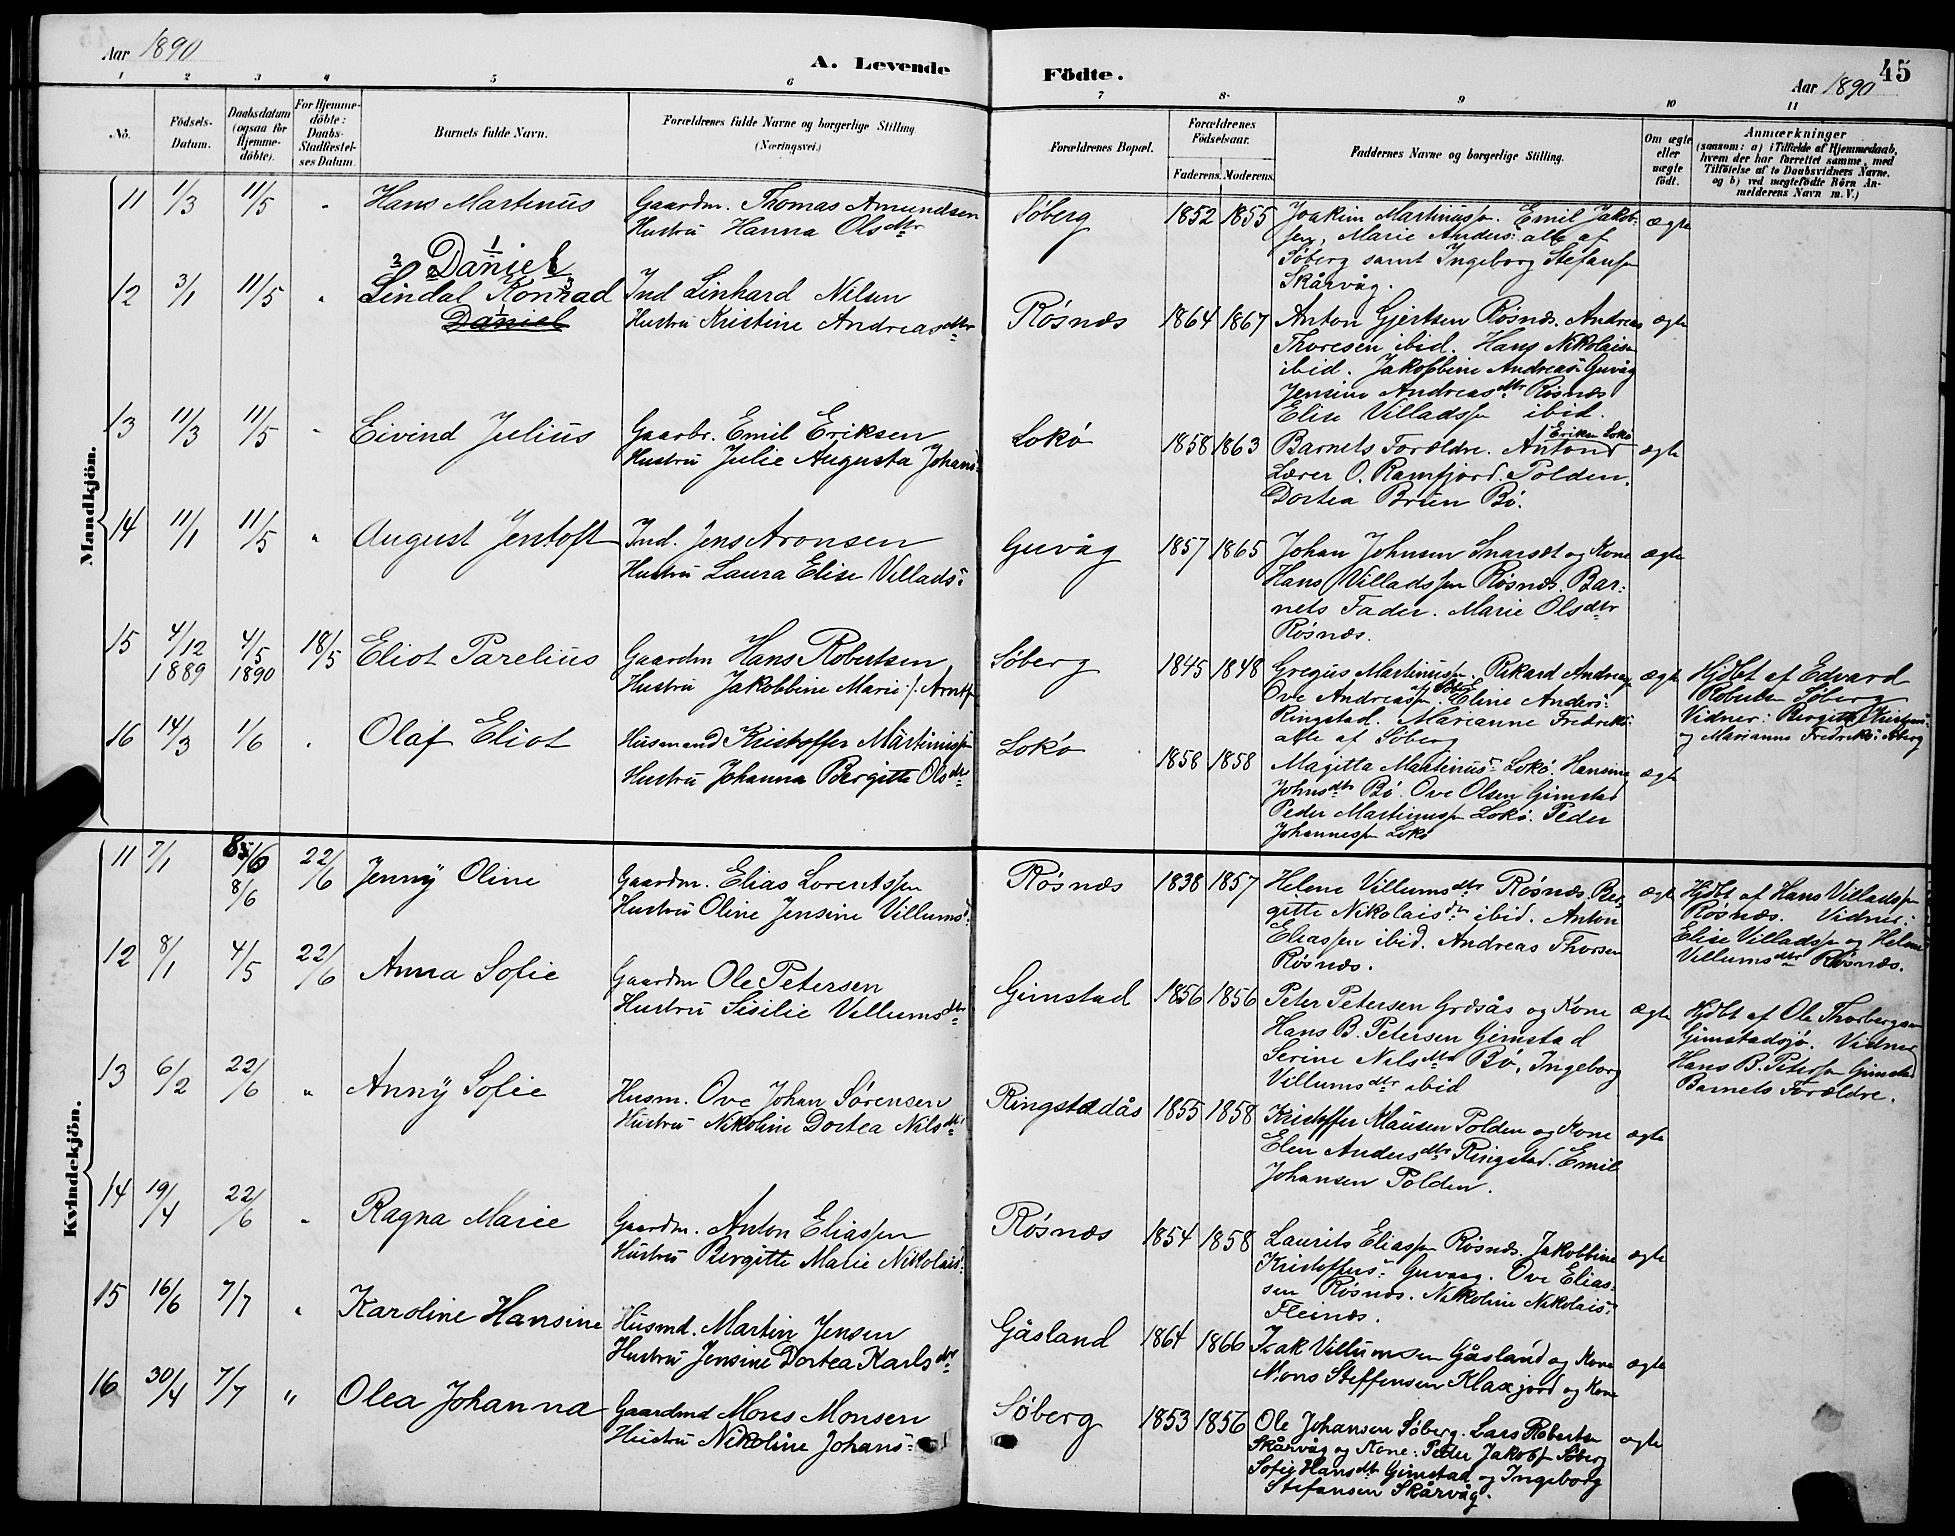 Aar 1890
A. Levende
Födte.
45
Aar 1890
1 2 3 4 5 6 7 8 9 10 11
No.
Födsels-Datum.
Daabsdatum (ogsaa for Hjemme-döbte).
For Hjemme-döbte: Daabs-Stadfæstel-ses Datum.
Barnets fulde Navn.
Forældrenes fulde Navne og borgerlige Stilling (Næringsvei.)
Forældrenes Bopæl.
Forældrenes Födselsaar.
Faderens. Moderens.
Faddernes Navne og borgerlige Stilling.
Om ægte eller uægte födt.
Anmærkninger
(saasom: a) i Tilfælde af Hjemmedaab,
hvem der har forrettet samme, med
Tilföielse af to Daabsvidners Navne.
og b) ved uægtefödte Börn An-
melderens Navn m. V.)
Mandkjön.
11 1/3 11/5 " Hans Martinus
Gaardm. Thomas Amundsen
Hustru Hanna Olsdtr
Søberg 1852 1855
Joakim Martinussn. Emil Jakob-
sen, Marie Anders: alle af
Søberg samt Ingeborg Stefansn
Skårvåg.
ægte
12 3/1 11/5 "
1
Daniel
2 3
Lindal Konrad
Daniel
Ind Linhard Nilsen
Hustru Kristine Andreasdtr
Røsnæs 1864 1867
Anton Gjertsen Røsnæs. Andreas
Thoresen ibid. Hans Nikolaisen
ibid. Jakobbine Andreas: Guvåg
Jensine Andreasdtr Røsnæs
Elise Villadssn ibid.
ægte
13 11/3 11/5 " Eivind Julius
Gaarbr. Emil Eriksen
Hustru Julie Augusta Johans:
Lokø 1858 1863
Eriksen Lokø
Barnets Forældre. Anton
Lærer O. Ramfjord. Polden.
Dortea Bruun Bø.
ægte
14 11/1 11/5 " August Jentoft
Ind. Jens Aronsen
Hustru Laura Elise Villads:
Guvåg 1857 1865
Johan Johnsen Snarsæt og Kone
Hans Villadssen Røsnæs. Bar-
nets Fader. Marie Olsdtr
Røsnæs.
ægte
15 4/12 1889 4/5 1890 18/5 Eliot Parelius
Gaardm Hans Robertsen
Hustru Jakobbine Marie f. Arntsn
Søberg 1845 1848
Gregus Martinussn. Rikard Andreas
Ove Andreassn. Eline Anders:
Ringstad. Marianne Fredriks:
alle af Søberg
ægte
Hjdbt af Edvard
Robertsen Søberg
Vidner: Bergitte Kristens:
og Marianne Fredriks: Søberg
16 14/3 1/6 " Olaf Eliot
Husmand Kristoffer Martinussn
Hustru Johanna Bergitte Olsdtr
Lokø 1858 1858
Magitta Martinus: Lokø. Hansine
Johnsdtr Bø. Ove Olsen Gimstad
Peder Martinussn Lokø. Peder
Johannessn Lokø
ægte
Kvindekjön.
11 7/1 8/6 22/6 Jenny Oline
Gaardm. Elias Lorentssn
Hustru Oline Jensine Villumsd:
Røsnæs 1838 1857
Helene Villumsdtr Røsnæs. Ber-
gitte Nikolaisdtr ibid. Anton
Eliassen ibid. Andreas Thorsen
Røsnæs.
ægte
Hjdbt af Hans Villadssn
Røsnæs. Vidner:
Elise Villadssn og Helene
Villumsdtr Røsnæs.
12 8/1 4/5 22/6 Anna Sofie
Gaardm Ole Petersen
Hustru Sisilie Villumsdtr
Gimstad 1856 1856
Peter Petersen Grøsås og Kone
Hans B. Petersen Gimstad
Serine Nilsdtr Bø, Ingeborg
Villumsdtr ibid
ægte
Hjdbt af Ole Thorbergsen
Gimstadsjø. Vidner
Hans B. Petersn Gimstad
Barnets Forældre.
13 6/2 22/6 " Anny Sofie
Husm. Ove Johan Sørensen
Hustru Nikoline Dortea Nilsdtr
Ringstadås 1855 1858
Kristoffer Mausen Polden og Kone
Elen Andersdtr Ringstad. Emil
Johansen Polden.
ægte
14 19/4 22/6 " Ragna Marie
Gaardm. Anton Eliassen
Hustru Bergitte Marie Nikolaisd:
Røsnæs 1854 1858
Laurits Eliassn Røsnæs. Jakobbine
Kristoffers: Guvaag. Ove Elias-
sen Røsnæs. Nikoline Nikolais:
Fleinæs.
ægte
15 16/6 7/7 " Karoline Hansine
Husmd. Martin Jensen
Hustru Jensine Dortea Karlsdtr
Gåsland 1864 1866
Isak Villumsen Gåsland og Kone
Mons Steffensen Klaxjord og Kone
ægte
16 30/4 7/7 " Olea Johanna
Gaardmd Mons Monsen
Hustru Nikoline Johans:
Søberg 1853 1856
Ole Johansen Søberg. Lars Robertsn
Skårvåg og Kone: Peder Jakobsn Søberg
Sofie Hansdtr Gimstad og Ingeborg
Stefansen Skårvåg.
ægte